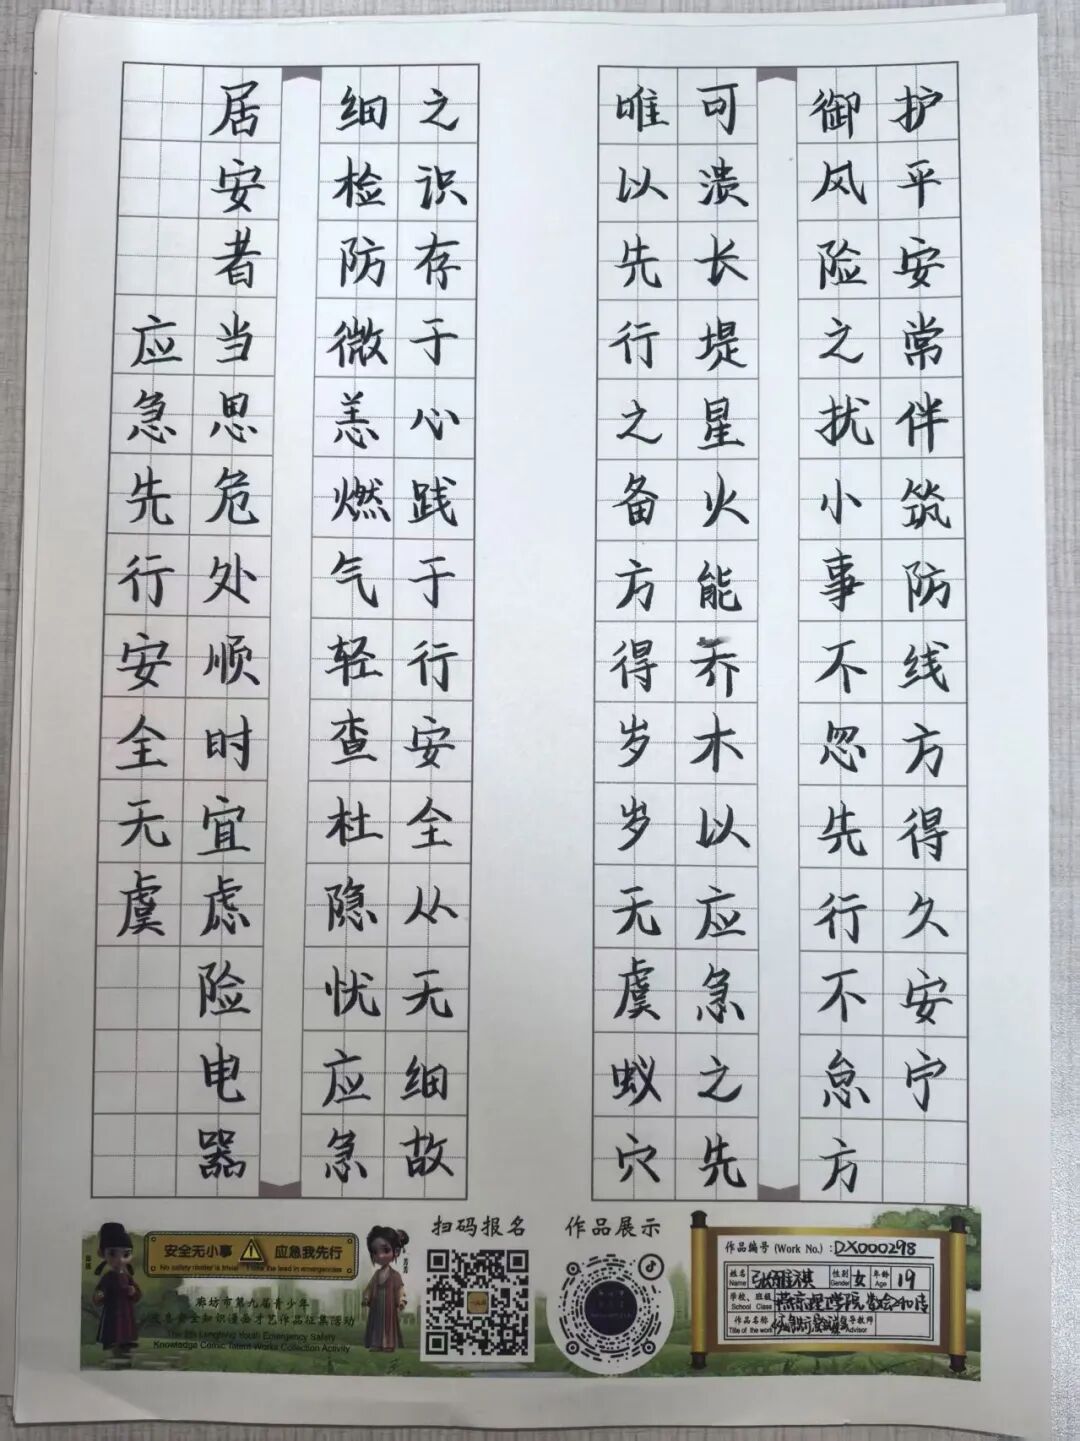 护平安常伴筑防线方得久安宁
御风险之扰小事不忽先行不怠方
可溃长堤星火能乔木以应急之先
唯以先行之备方得岁岁无虞蚁穴
之识存于心践于行安全从无细故
细检防微恙燃气轻查杜隐忧应急
居安者当思危处顺时宜虑险电器
应急先行安全无虞
安全无小事 应急我先行
No safety matter is trivial I take the lead in emergencies
廊坊市第九届青少年
应急安全知识漫画才艺作品征集活动
The 9th Langfang Youth Emergency Safety
Knowledge Comic Talent Works Collection Activity
扫码报名
作品展示
作品编号 (Work No.) : DX000298
姓名 Name 性别 Gender 女 年龄 Age 19
学校、班级 School Class 燕京理工学院
作品名称 Title of the work 指导教师 Advisor